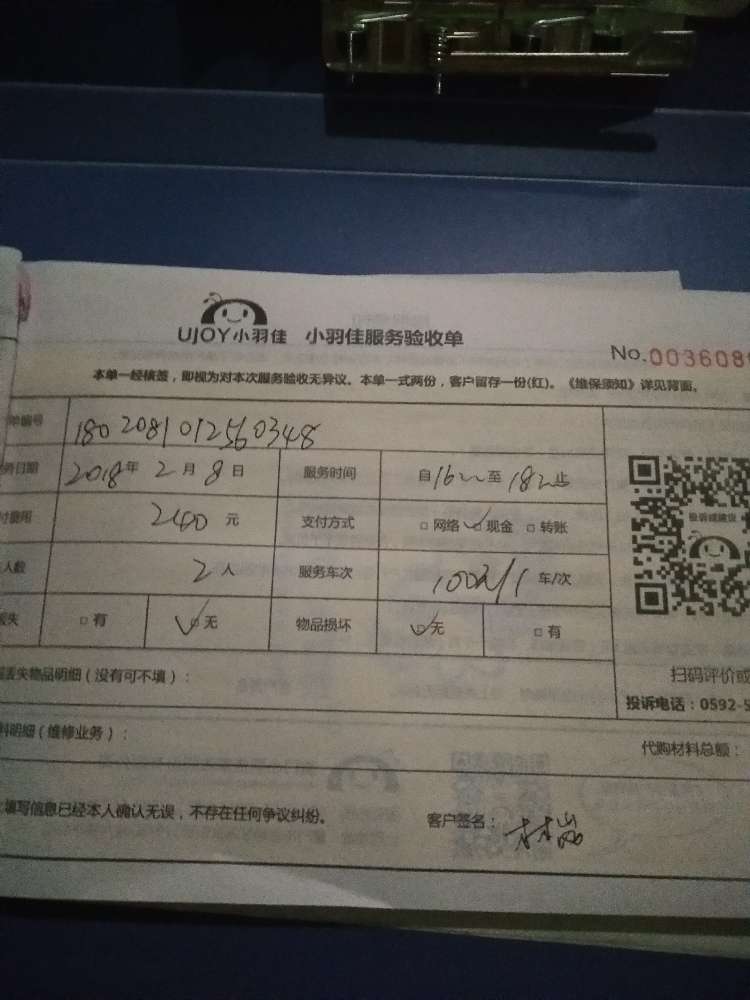 UJOY小羽佳 小羽佳服务验收单
No.003608
本单一经核签，即视为对本次服务验收无异议。本单一式两份，客户留存一份(红)。《维保须知》详见背面。
单编号 1802081012560348
务日期 2018年 2月 8日 服务时间 自16 至 18 止
付费用 240元 支付方式 □网络 ☑现金 □转账
人数 2人 服务车次 车/次
丢失 □有 ☑无 物品损坏 ☑无 □有
投诉或建议
丢失物品明细（没有可不填）：
扫码评价或
投诉电话：0592-5
料明细（维修业务）：
代购材料总额：
填写信息已经本人确认无误，不存在任何争议纠纷。 客户签名：林